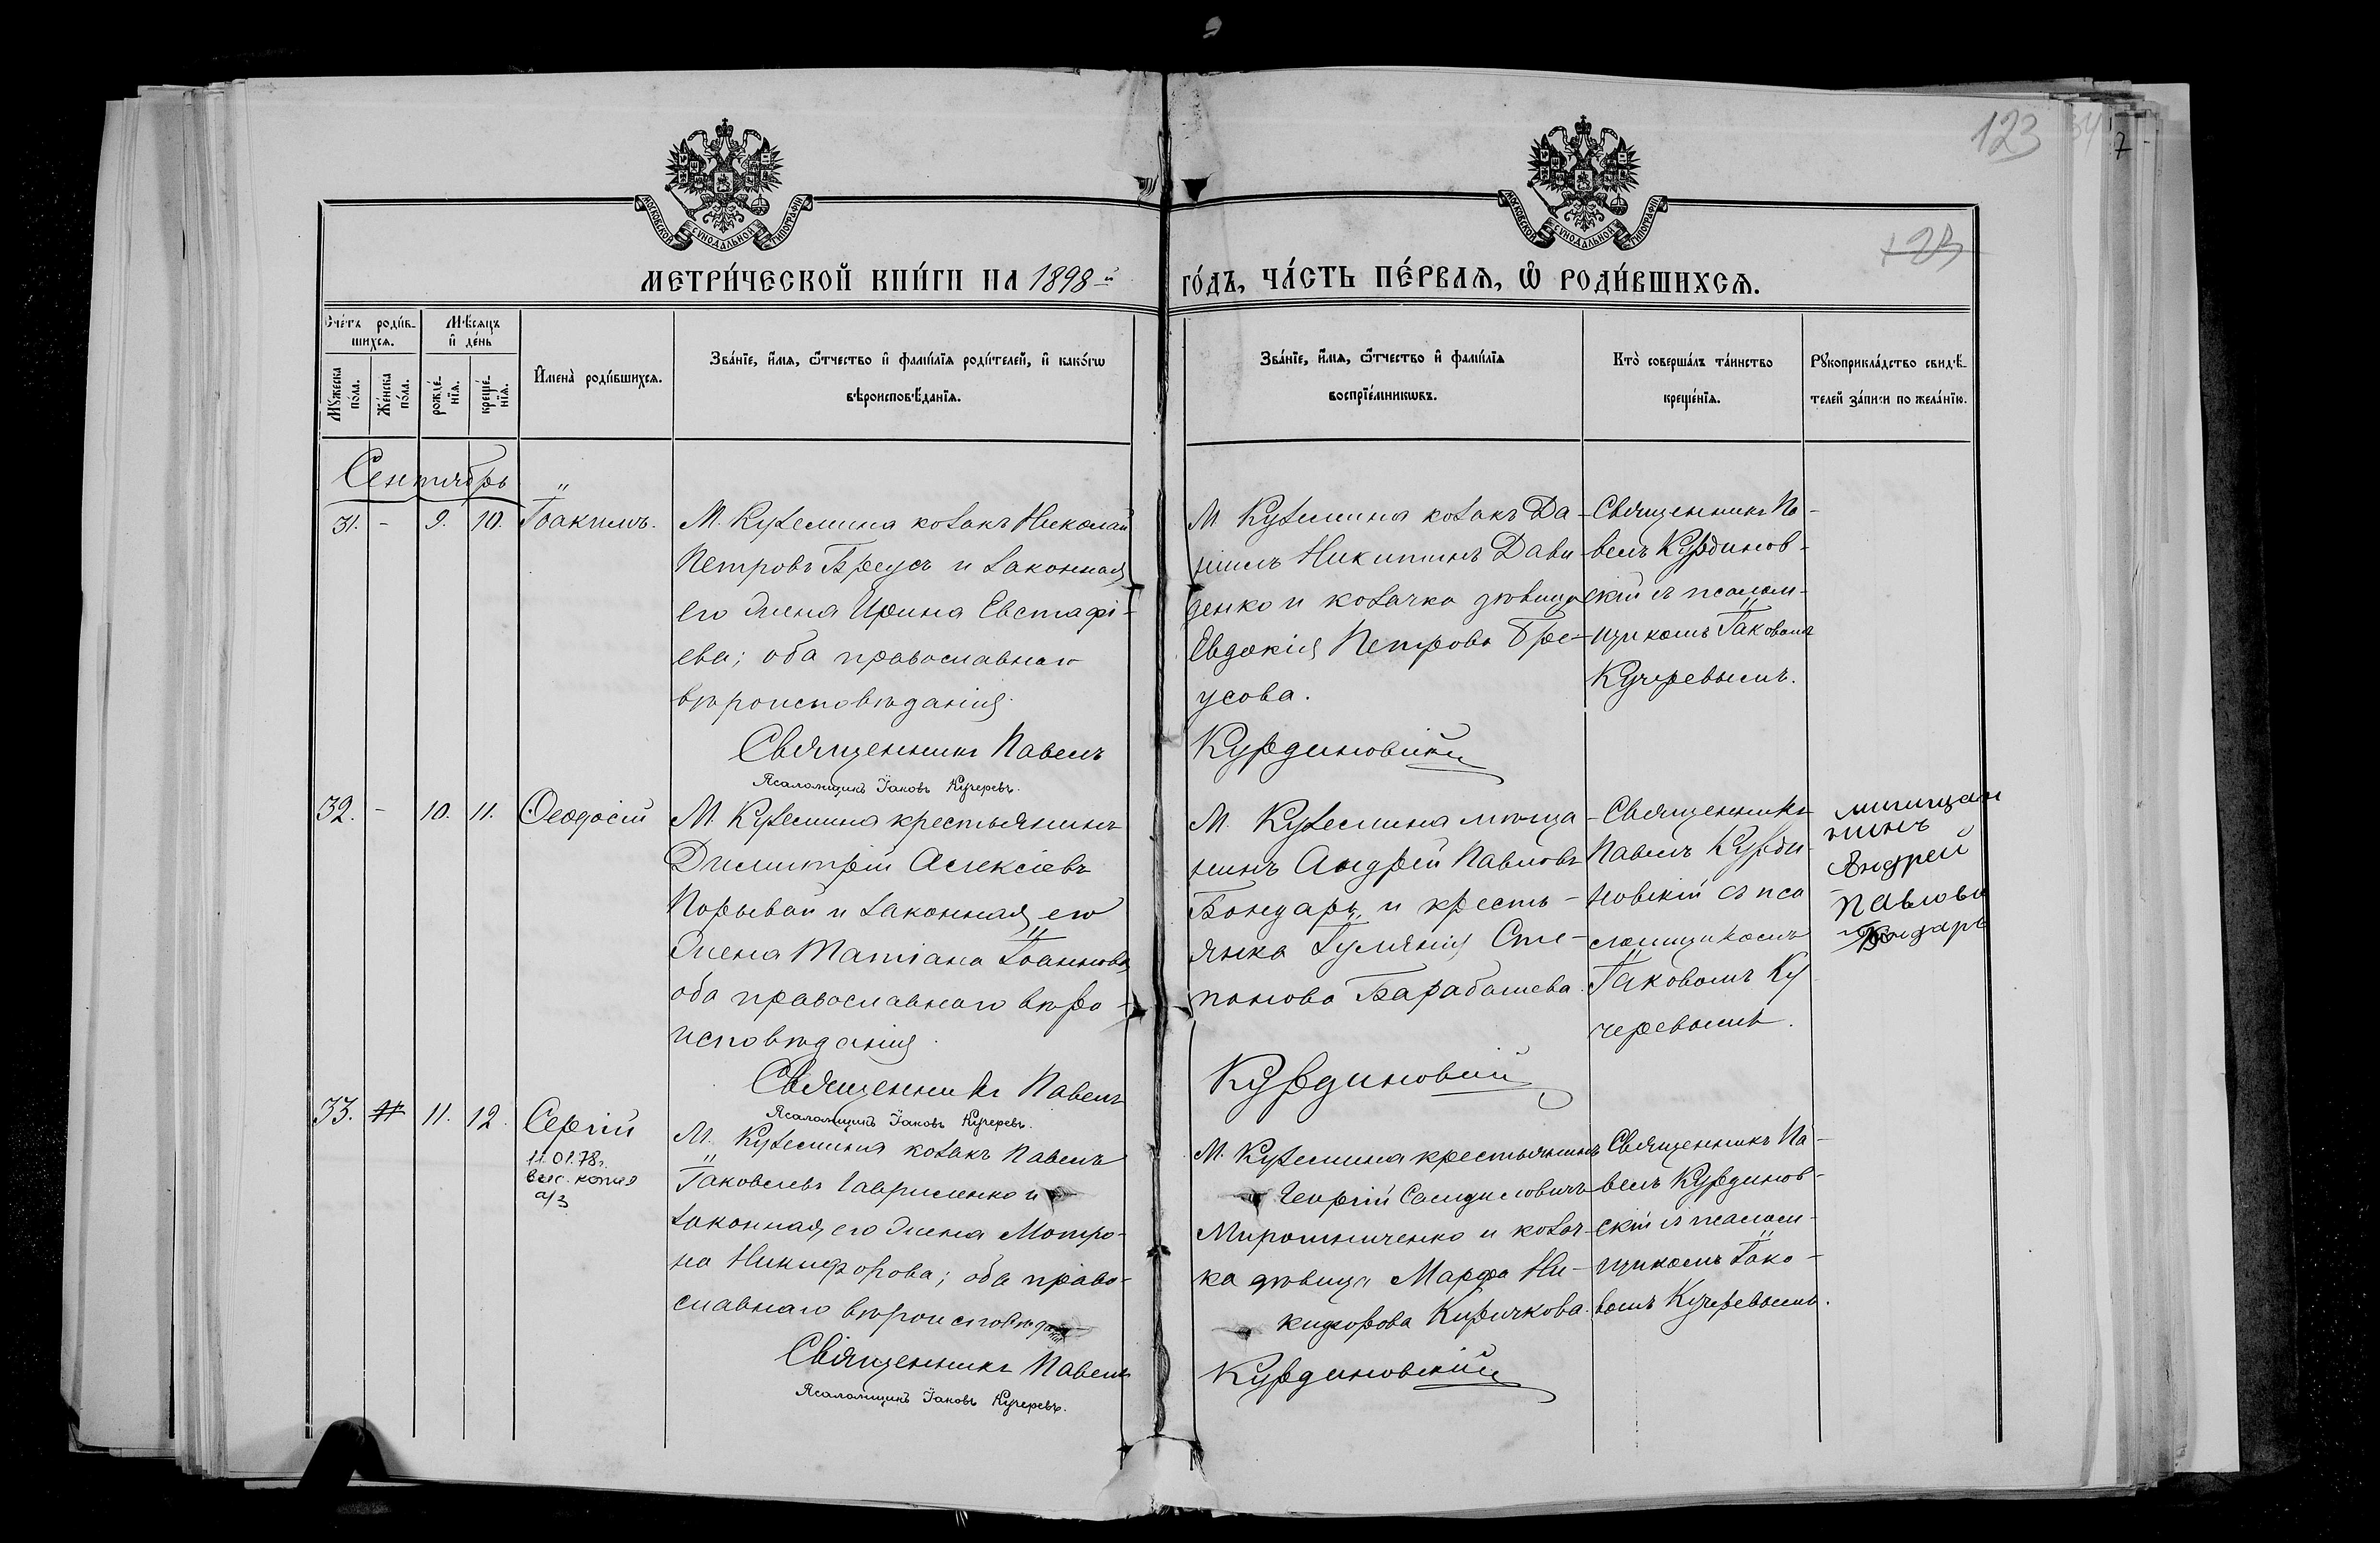 123
МОСКОВСКОЙ СѴНОДАЛЬНОЙ ТИПОГРАФІИ
МОСКОВСКОЙ СѴНОДАЛЬНОЙ ТИПОГРАФІИ
МЕТРИ́ЧЕСКОЙ КНИ́ГИ НА 1898-й
ГО́ДЪ, ЧА́СТЬ ПЕ́РВАЯ, Ѽ РОДИ́ВШИХСЯ.
Счетъ роди́в-
шихся.
Мѣ́сяцъ
и҆ де́нь
Мꙋжеска
по́ла.
Же́нска
по́ла.
рожде́-
нїя.
креще́-
нїя.
И҆мена̀ роди́вшихся.
Зва́нїе, и҆́мя, ѻ҆́тчество и҆ фами́лїя роди́телей, и҆ како́гѡ
вѣроисповѣ́данїя.
Зва́нїе, и҆́мя, ѻ҆́тчество и҆ фами́лїя
воспрїе́мникѡвъ.
Кто̀ соверша́лъ та́инство
креще́нїя.
Рꙋкоприкла́дство свидѣ́-
телей за́писи по жела́нїю.
Сентябрь
31. - 9. 10. Іоакимъ.
М. Куземина козакъ Николай
Петровъ Бреусъ и законная
его жена Ирина Евстафі-
ева; оба православнаго
вѣроисповѣданія.
Священникъ Павелъ
Псаломщикъ Іаковъ Кучеревъ.
М Куземина козакъ Да-
ніилъ Никитинъ Дави
денко и козачка дѣвица
Евдокія Петрова Бре-
усова.
Курдиновскій
Священникъ Па-
велъ Курдинов-
скій съ псалом-
щикомъ Іаковомъ
Кучеревымъ.
32. - 10. 11. Ѳеодосій
М. Куземина крестьянинъ
Димитрій Алексіевъ
Порывай и законная его
жена Татіана Іоаннова
оба православнаго вѣро-
исповѣданія.
Священникъ Павелъ
Псаломщикъ Іаковъ Кучеревъ.
М. Куземина мѣща-
нинъ Андрей Павловъ
Бондарь и кресть-
янка Іулянія Сте-
панова Барабашева.
Курдиновскій
Священникъ
Павелъ Курди-
новскій съ пса
ломщикомъ
Іаковомъ Ку
черевымъ.
нинъ
Андрей
Павловъ
Бондарь
33. 11. 12. Сергій
11.01.78г.
выс. копия
а/з
М. Куземина козакъ Павелъ
Іаковлевъ Гавриленко и
законная его жена Матро-
на Никифорова; оба право-
славнаго вѣроисповѣданія
Священникъ Павелъ
Псаломщикъ Іаковъ Кучеревъ.
М. Куземина крестьянинъ
Георгій Самуиловичъ
Мирошниченко и козач-
ка дѣвица Марфа Ни-
кифорова Киричкова.
Курдиновскій
Священникъ Па-
велъ Курдинов-
скій съ псалом-
щикомъ Іако-
вомъ Кучеревымъ.